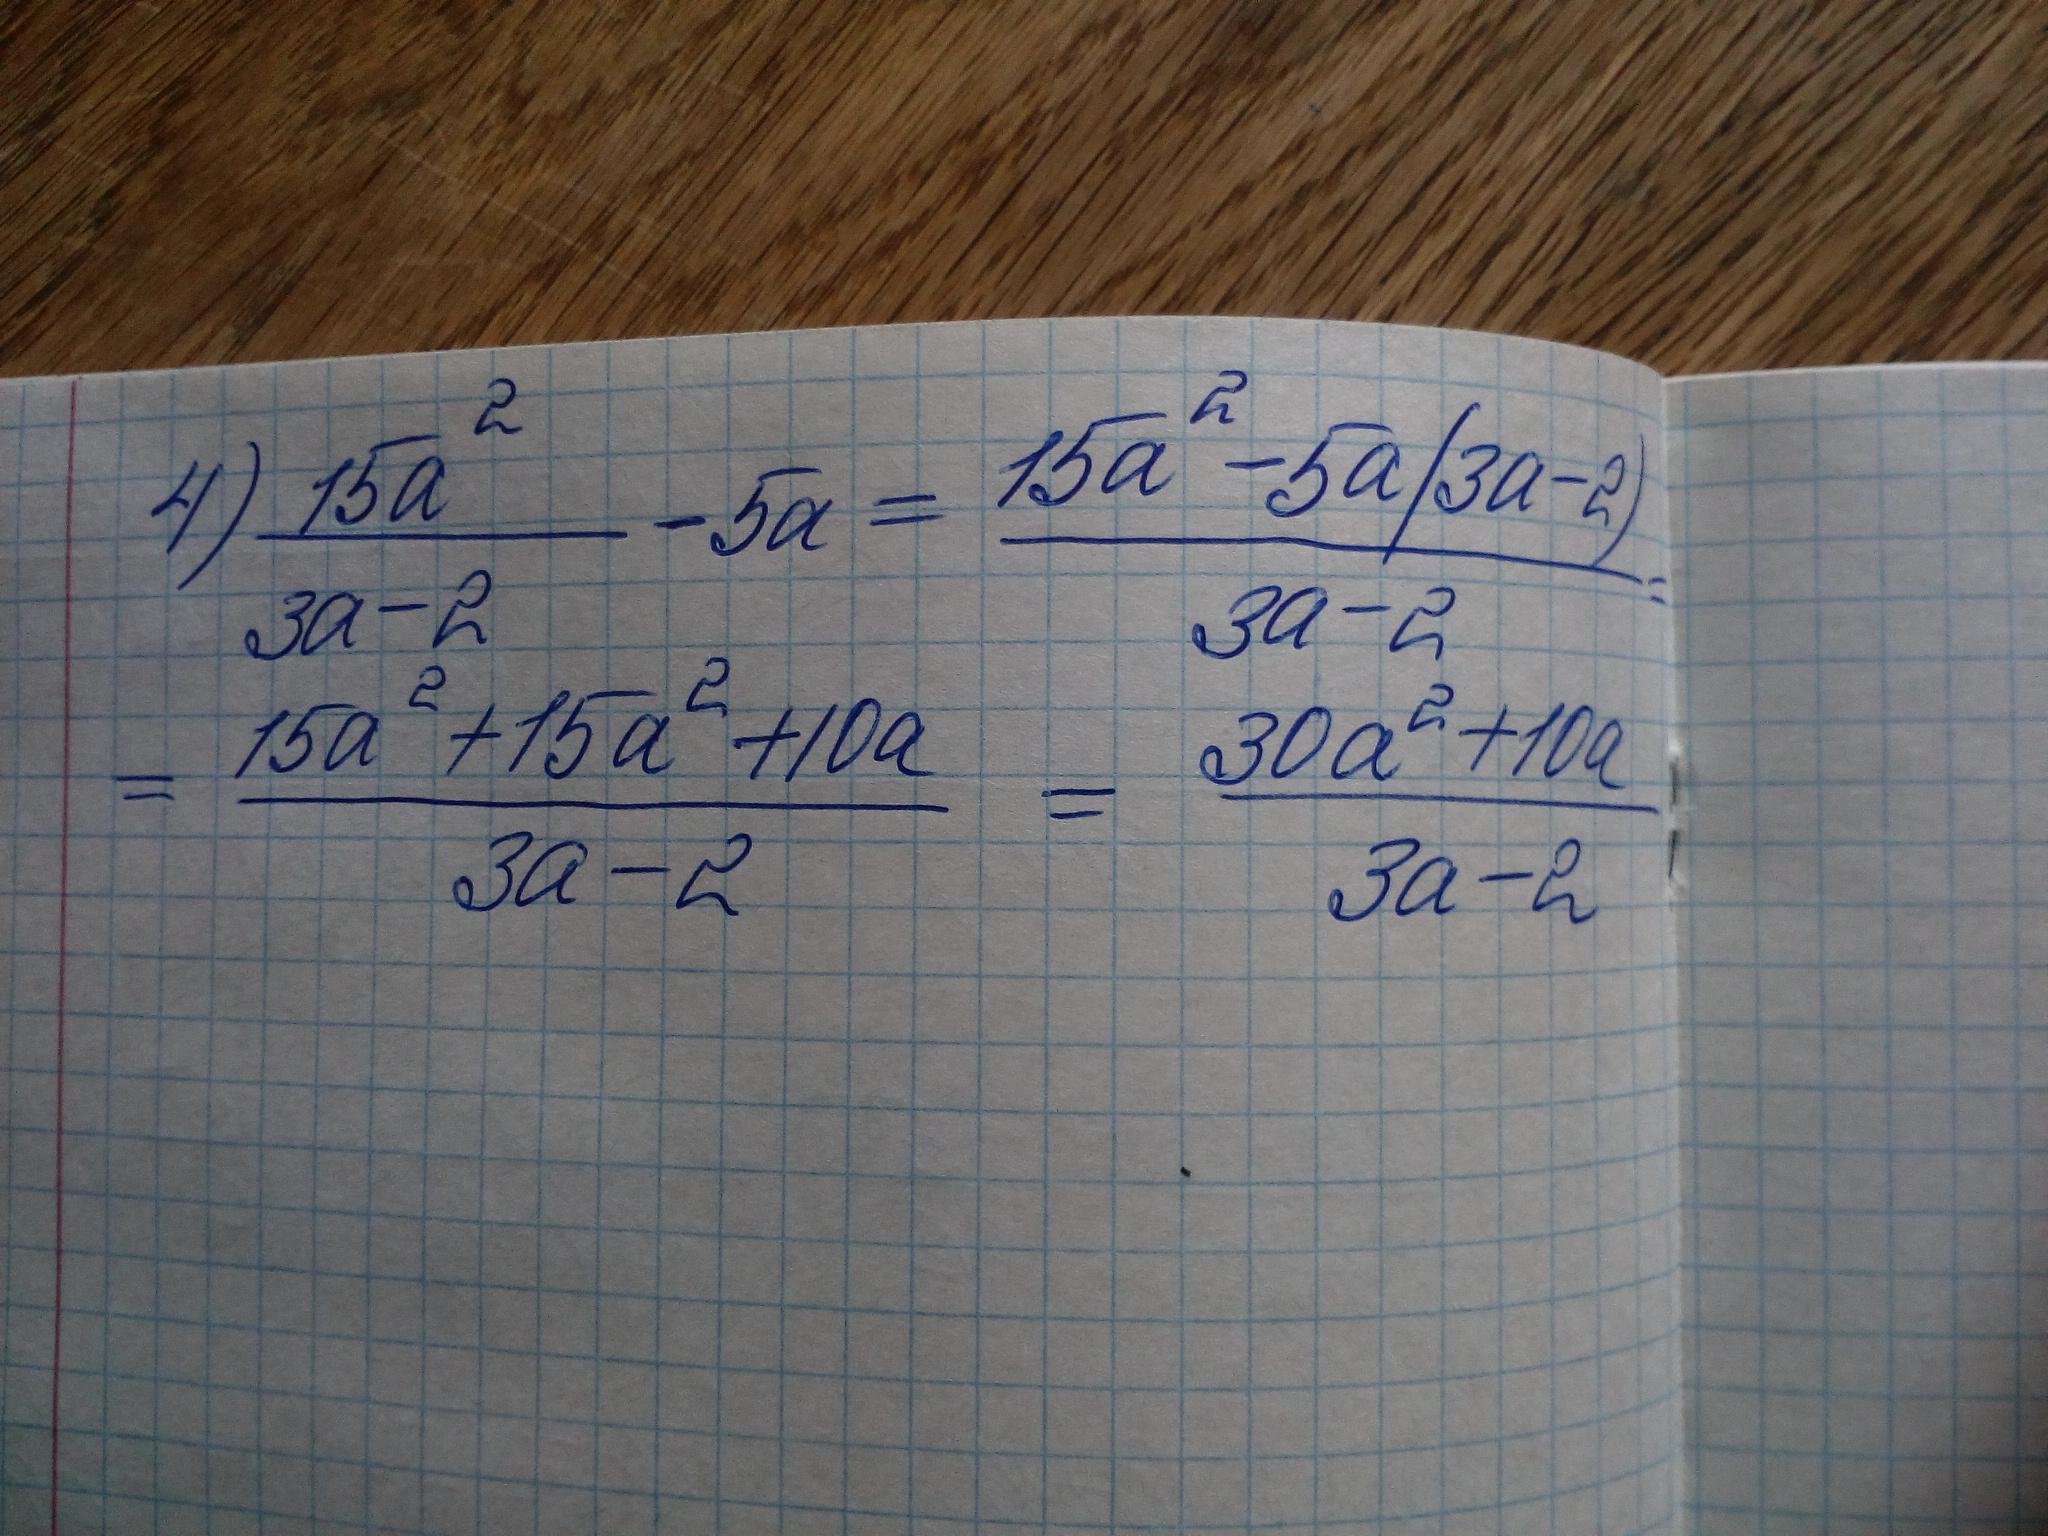 4) 15a²/(3a-2) - 5a = (15a² - 5a(3a-2))/(3a-2) =
= (15a² + 15a² + 10a)/(3a-2) = (30a² + 10a)/(3a-2)